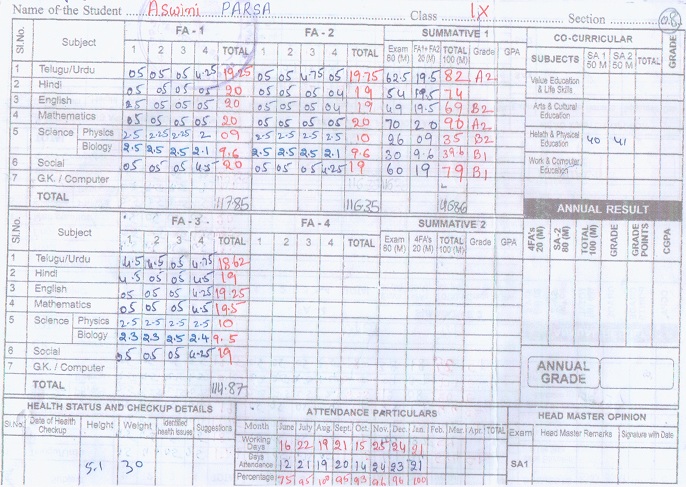 Name of the Student Aswini PARSA Class IX Section 08
Sl.No. Subject FA - 1 FA - 2 SUMMATIVE 1 CO-CURRICULAR GRADE
1 2 3 4 TOTAL 1 2 3 4 TOTAL Exam 80 (M) FA1+ FA2 20 (M) TOTAL 100 (M) Grade GPA SUBJECTS SA 1 50 M SA 2 50 M TOTAL
1 Telugu/Urdu 05 05 05 4.25 19.25 05 05 4.75 05 19.75 62.5 19.5 82 A2
Value Education & Life Skills
2 Hindi 05 05 05 05 20 05 05 05 04 19 54 19.5 74
3 English 25 05 05 05 20 05 05 05 04 19 49 19.5 69 B2
Arts & Cultural Education
4 Mathematics 05 05 05 05 20 05 05 05 05 20 70 20 90 A2
5 Science Physics 2.5 2.25 2.25 2 09 2.5 2.5 2.5 2.5 10 26 09 35 B2
Health & Physical Education 40 41
Biology 2.5 2.5 2.5 2.1 9.6 2.5 2.5 2.5 2.1 9.6 30 9.6 39.6 B1
6 Social 05 05 05 4.5 20 05 05 05 4.25 19 60 19 79 B1
Work & Computer Education
7 G.K. / Computer
TOTAL 117.85 116.35
ANNUAL RESULT
Sl.No. Subject FA - 3 FA - 4 SUMMATIVE 2
1 2 3 4 TOTAL 1 2 3 4 TOTAL Exam 80 (M) 4FA's 20 (M) TOTAL 100 (M) Grade GPA
4FA's 20 (M) SA-2 80 (M) TOTAL 100 (M) GRADE GRADE POINTS CGPA
1 Telugu/Urdu 4.5 4.5 05 4.75 18.62
2 Hindi 4.5 05 05 4.5 19
3 English 05 05 05 4.25 19.25
4 Mathematics 05 05 05 4.5 19.5
5 Science Physics 2.5 2.5 2.5 2.5 10
Biology 2.3 2.3 2.5 2.4 9.5
6 Social 05 05 05 4.25 19
7 G.K. / Computer
ANNUAL GRADE
TOTAL 114.87
HEALTH STATUS AND CHECKUP DETAILS ATTENDANCE PARTICULARS HEAD MASTER OPINION
Sl.No. Date of Health Checkup Height Weight Identified health Issues Suggestions
Month June July Aug. Sept. Oct. Nov. Dec. Jan. Feb. Mar. Apr. TOTAL
Exam Head Master Remarks Signature with Date
Working Days 16 22 19 21 15 25 24 21
5.1 30
Days Attendence 12 21 19 20 14 24 23 21
SA1
Percentage 75 95 100 95 93 96 96 100